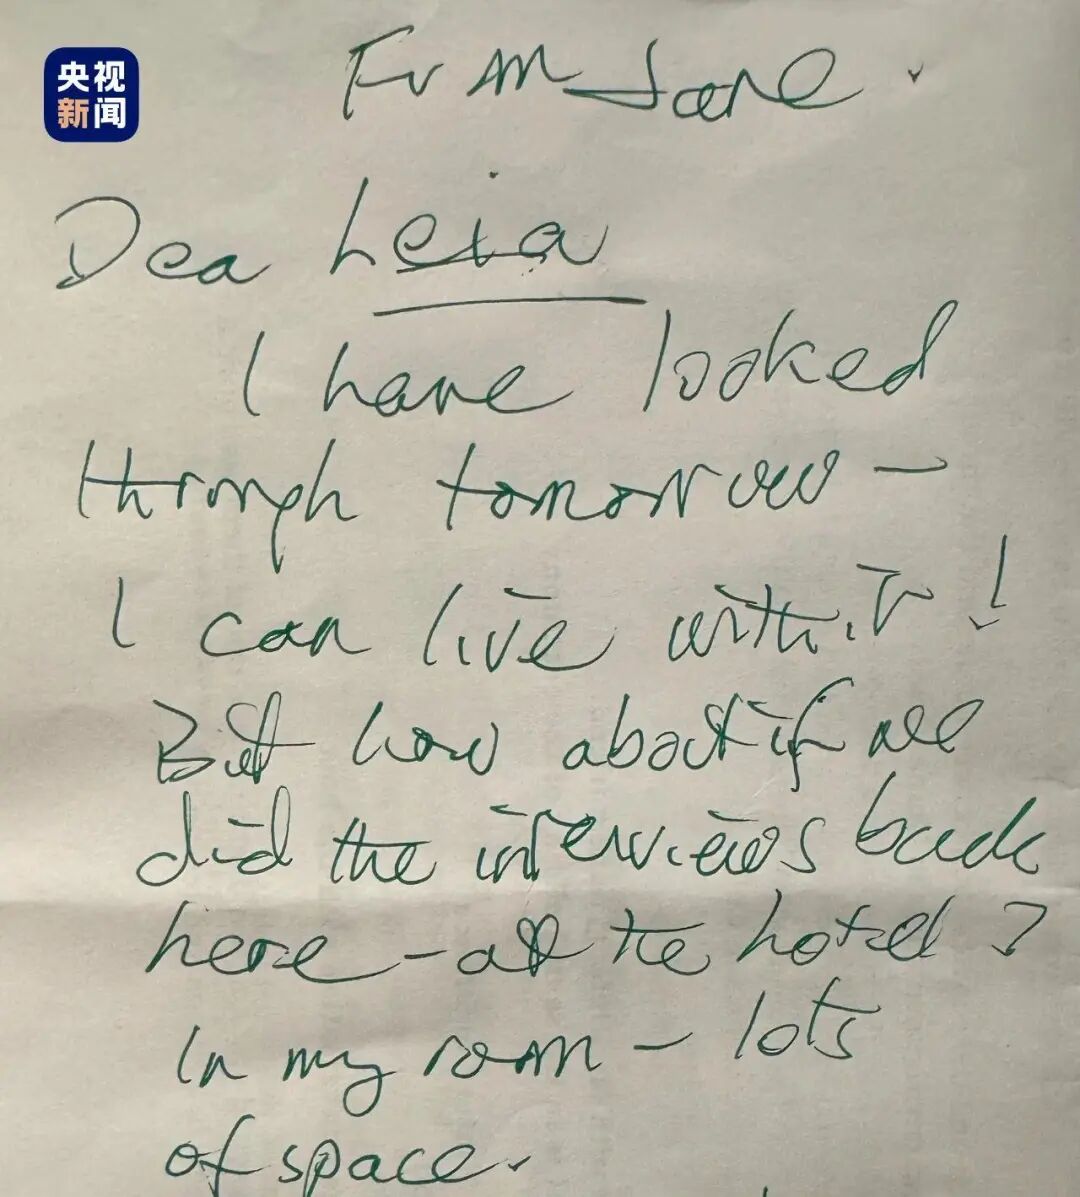 央视
新闻
From Jane.
Dea Leia
I have looked
through tomorrow –
I can live with it!
But how about if we
did the interviews back
here – at the hotel?
In my room – lots
of space.